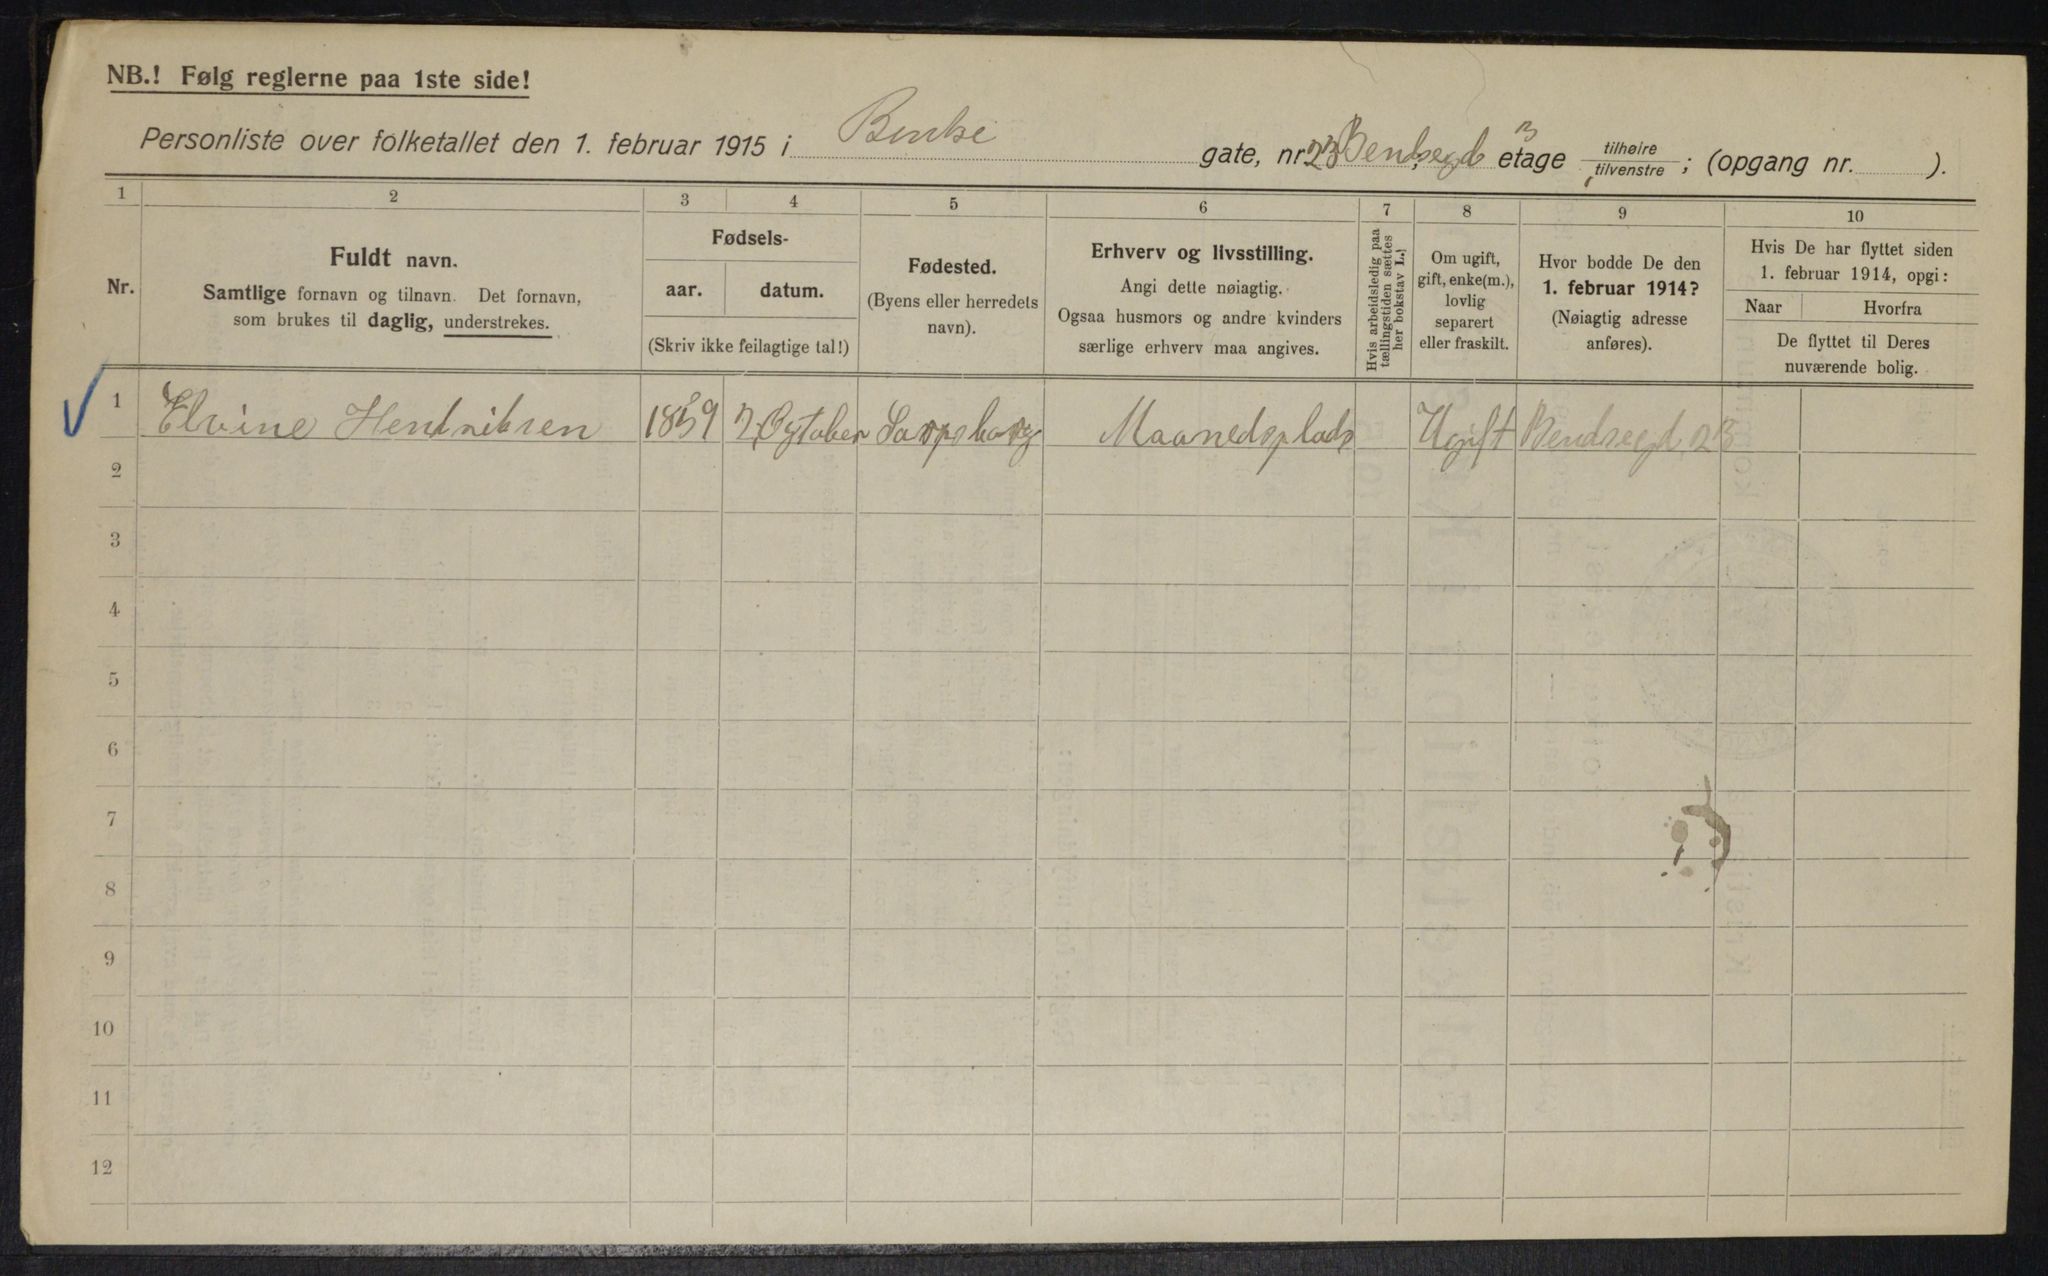 NB.! Følg reglerne paa 1ste side!
Personliste over folketallet den 1. februar 1915 i Bentse gate, nr. 23 Bendsegd 3 etage tilhøire tilvenstre ; (opgang nr. ).
1 2 3 4 5 6 7 8 9 10
Nr.
Fuldt navn.
Samtlige fornavn og tilnavn. Det fornavn,
som brukes til daglig, understrekes.
Fødsels-
aar. datum.
(Skriv ikke feilagtige tal!)
Fødested.
(Byens eller herredets
navn).
Erhverv og livsstilling.
Angi dette nøiagtig.
Ogsaa husmors og andre kvinders
særlige erhverv maa angives.
Hvis arbeidsledig paa
tællingstiden sættes
her bokstav L.)
Om ugift,
gift, enke(m.),
lovlig
separert
eller fraskilt.
Hvor bodde De den
1. februar 1914?
(Nøiagtig adresse
anføres).
Hvis De har flyttet siden
1. februar 1914, opgi:
Naar Hvorfra
De flyttet til Deres
nuværende bolig.
1 Elvine Hendriksen 1859 Oytober Sarpsborg Maanedsplads Ugift Bendsegd 23
2
3
4
5
6
7
8
9
10
11
12